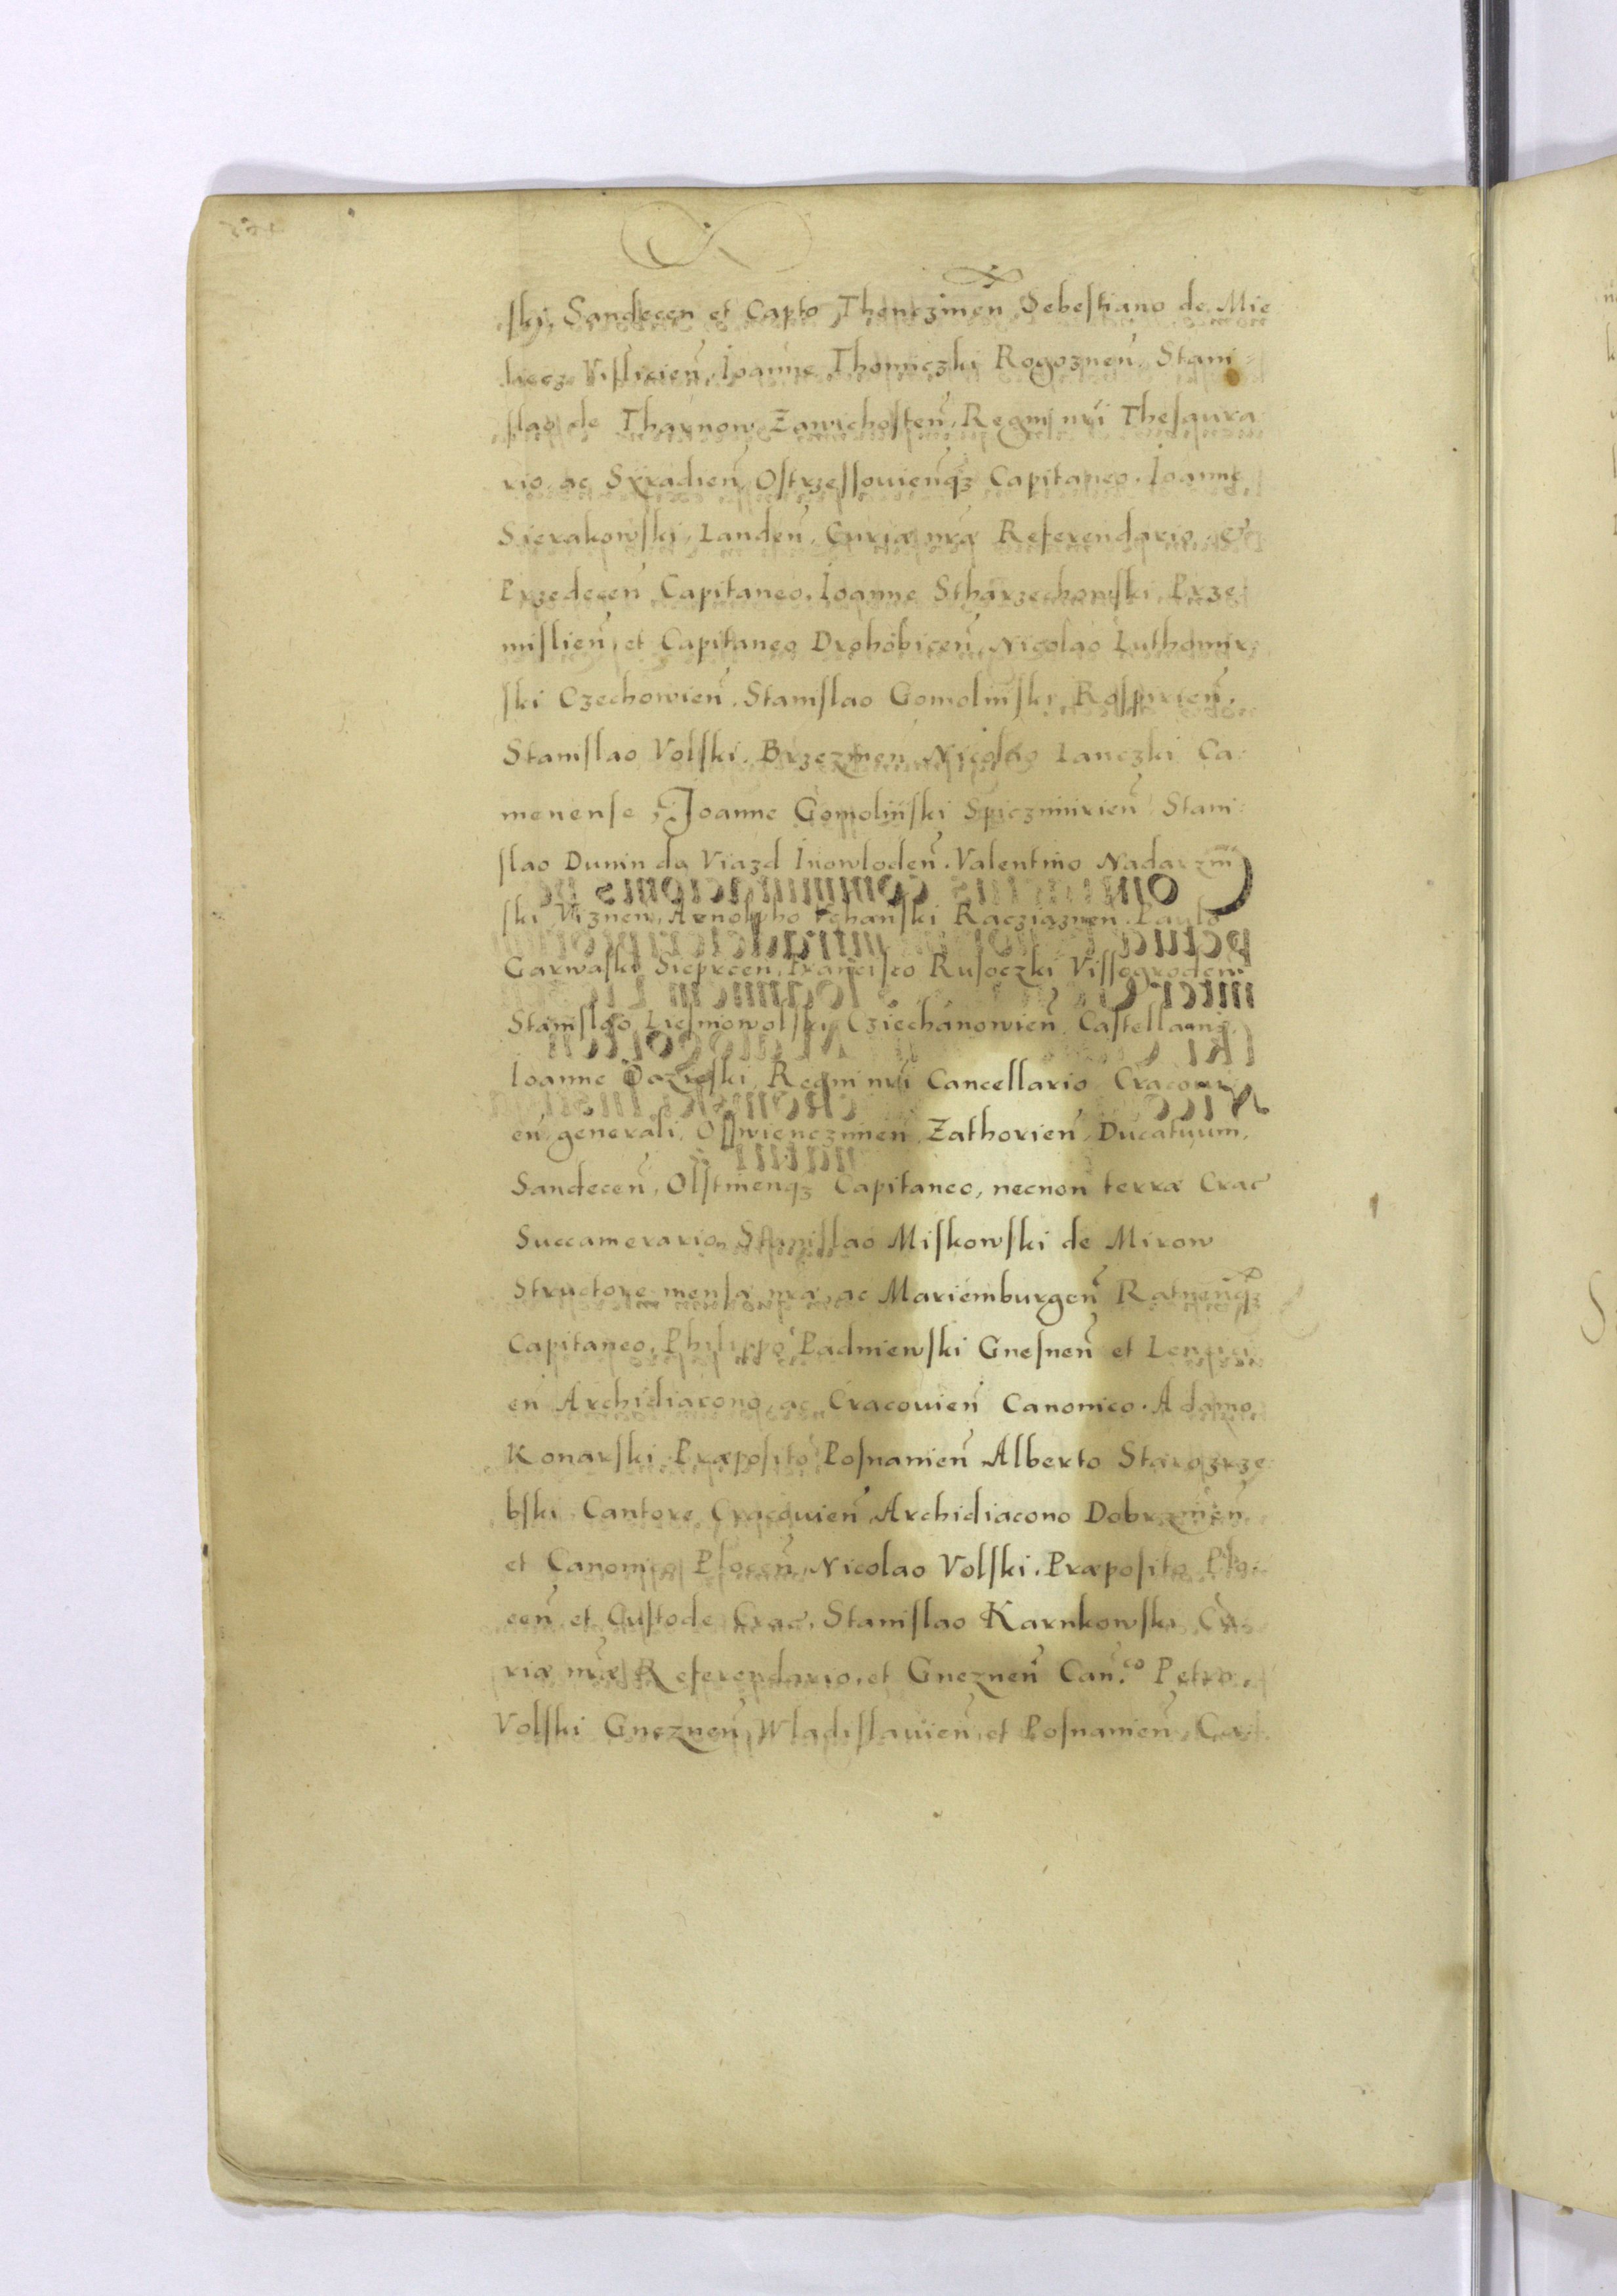 ski, Sandecen et Capto Thenczinen̄ Sebestiano de Mie
lecz Vislicien̄, Ioanne Thomiczki Rogoznen̄, Stani-
slao de Tharnow Zawichosten̄, Regni nr̄i Thesaura
rio, ac Syradien̄ Ostrzessouienq̄ꝫ Capitaneo. Ioanne
Sierakowski, Landen̄, Curiæ nr̄æ Referendario, et
Przedecen̄ Capitaneo, Ioanne Stharzechowski Prze-
mislien̄, et Capitaneo Drohobicen̄, Nicolao Luthomir-
ski Czechowien̄. Stanislao Gomolinski Rospirien̄.
Stanislao Volski. Brzezinen, Nicolao Lanczki Ca-
menense, Joanne Gomoliński Spiczimirien̄ Stani-
slao Dunin da Viazd Inowloden̄. Valentino Nadarzin
ski Viznen, Arnolpho Vchanski Racziąznen. Paulo
Garwaski Sieprcen, Francisco Rusoczki Vissegroden
Stanislao Liesniowolski Cziechanowien̄ Castellanis
Ioanne Oczieski Regni nr̄i Cancellario Cracoui-
en generali, Osswienczimen Zathorien̄ Ducatuum,
Sandecen̄, Olstinenqꝫ Capitaneo, necnon terræ Crac
Succamerario, Stanislao Miskowski de Mirow
Structore mensæ nr̄æ, ac Mariemburgen̄ Ratnenq̄ꝫ
Capitaneo, Philippo Padniewski Gnesnen̄ et Lencici
en Archidiacono, ac Cracouien̄ Canonico. Adamo
Konarski Præposito Posnanien̄ Alberto Starozrze
bski Cantore Cracouien̄ Archidiacono Dobrzinen̄
et Canonico Plocen̄, Nicolao Volski. Præposito Plo-
cen̄ et Custode Crac, Stanislao Karnkowski Cu-
riæ nr̄æ Referendario, et Gneznen̄ Can.co Petro,
Volski Gneznen̄, Wladislauien̄, et Posnanien̄,